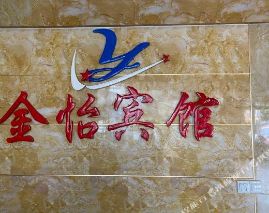 金怡宾馆